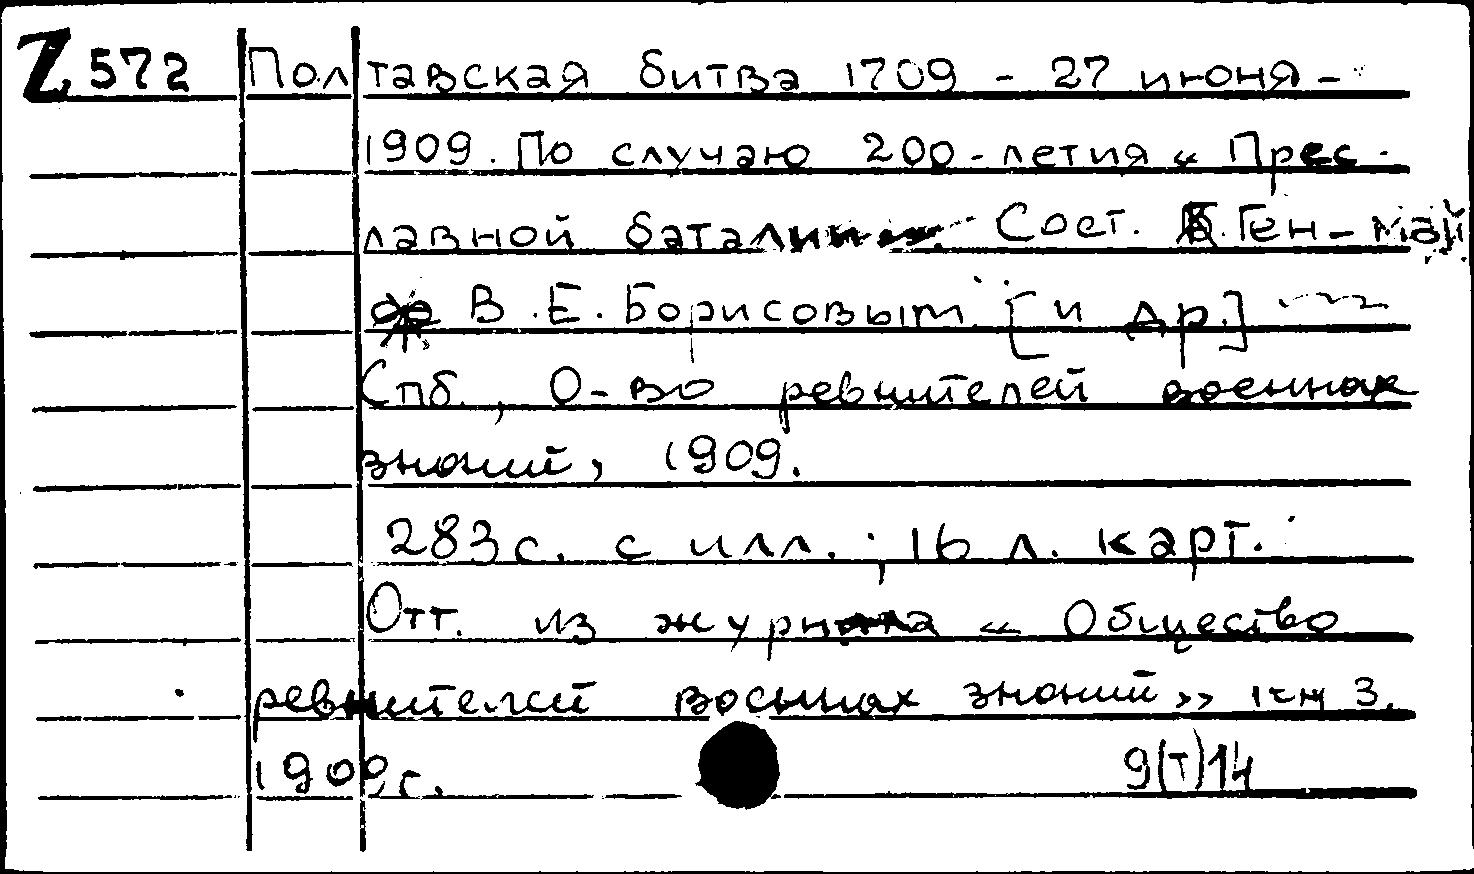 Z 572 Полтавская битва 1709 - 27 июня -
1909. По случаю 200-летия « Прес-
лавной баталии Сост. Ген-май
В.Е. Борисовым [и др.]
Спб., О-во ревнителей военных
знаний, 1909.
283с. с илл.; 16 л. карт.
Отт. из журнала « Общество
ревнителей военных знаний» кн 3.
1909г. 9(Т)14